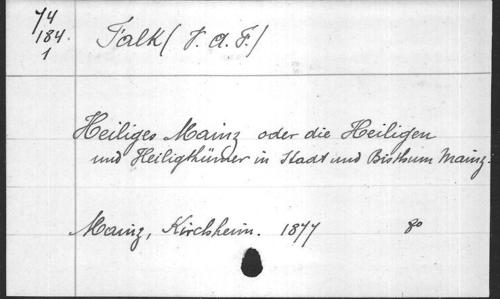 74
184.
1
Falk (V. A. F.)
Heiliges Mainz oder die Heiligen
und Heiligthümer in Stadt und Bisthum Mainz.
Mainz, Kirchheim. 1877 8o